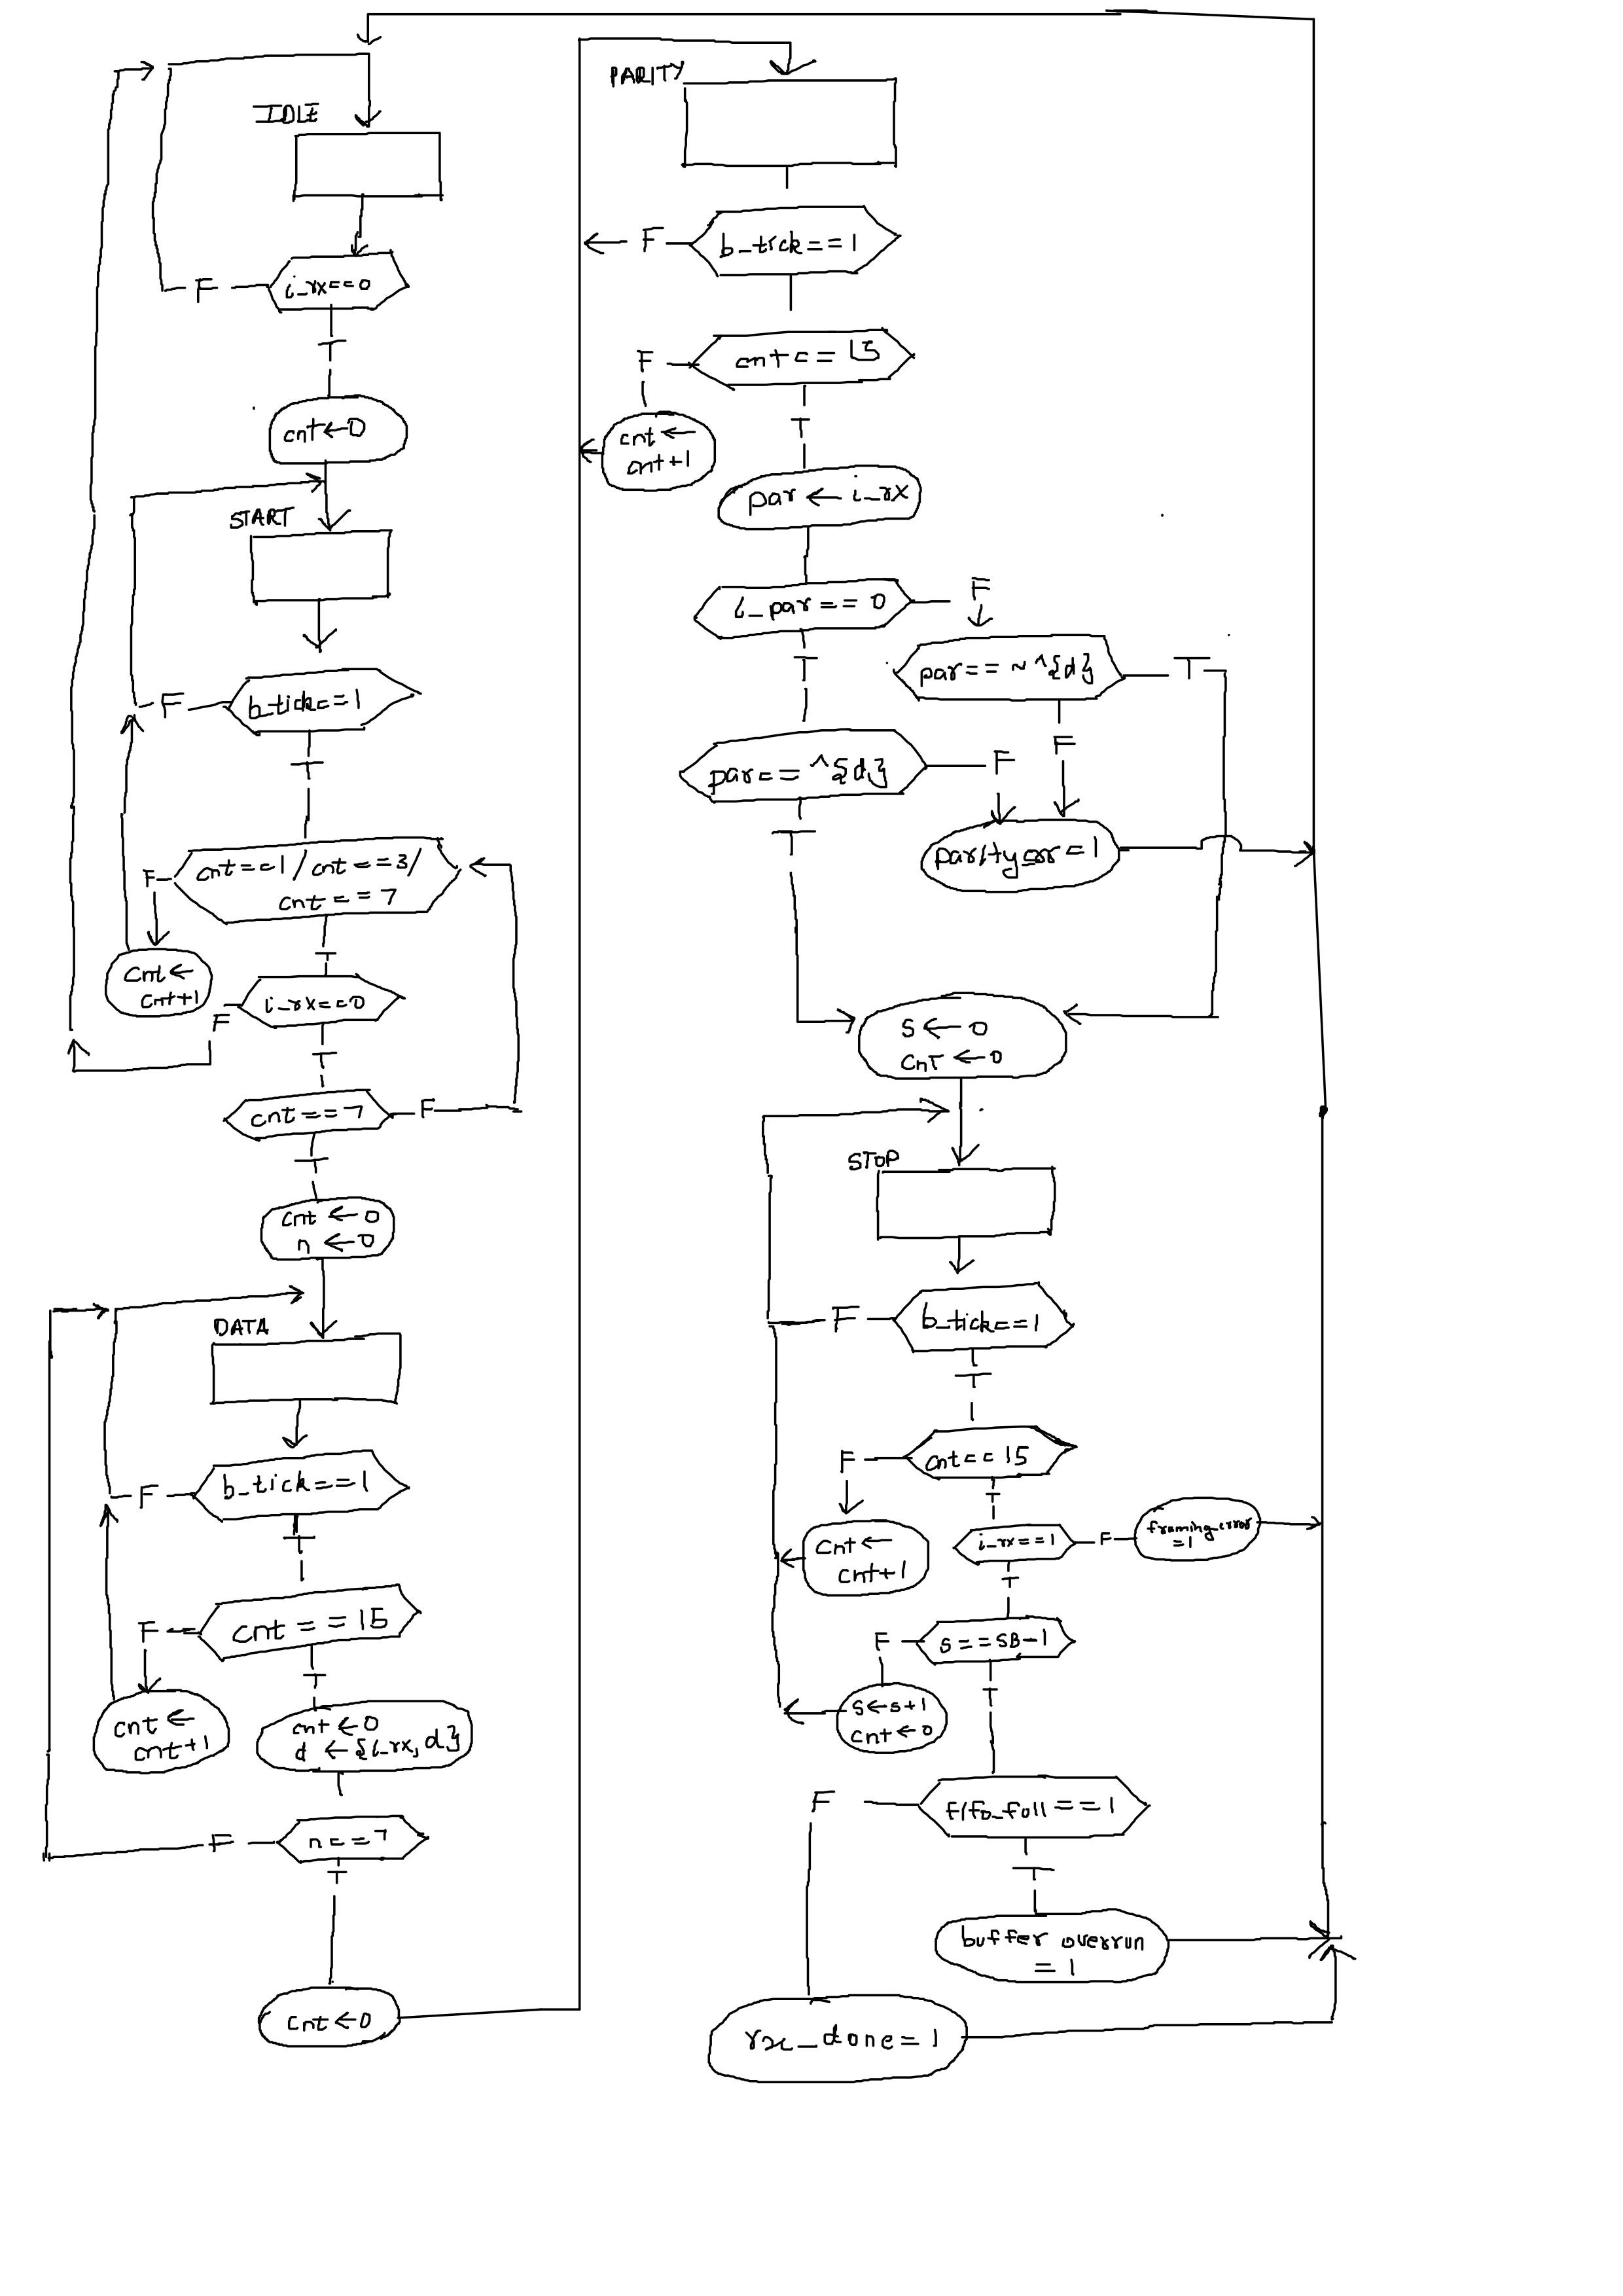 IDLE
i_rx==0
F
T
cnt←0
START
b_tick==1
F
T
cnt==1/cnt==3/
cnt==7
F
cnt←
cnt+1
T
i_rx==0
F
T
cnt==7
F
T
cnt←0
n←0
DATA
b_tick==1
F
T
cnt==15
F
cnt←
cnt+1
T
cnt←0
d←{i_rx,d}
n==7
F
T
cnt←0
PARITY
b_tick==1
F
cnt==15
F
cnt←
cnt+1
T
par←i_rx
i_par==0
F
T
par==~^{d}
T
F
par==^{d}
F
T
parity_err=1
S←0
cnt←0
STOP
b_tick==1
F
T
cnt==15
F
cnt←
cnt+1
T
i_rx==1
F
framing_error
=1
T
s==SB-1
F
s←s+1
cnt←0
T
fifo_full==1
F
T
buffer overrun
=1
rx_done=1